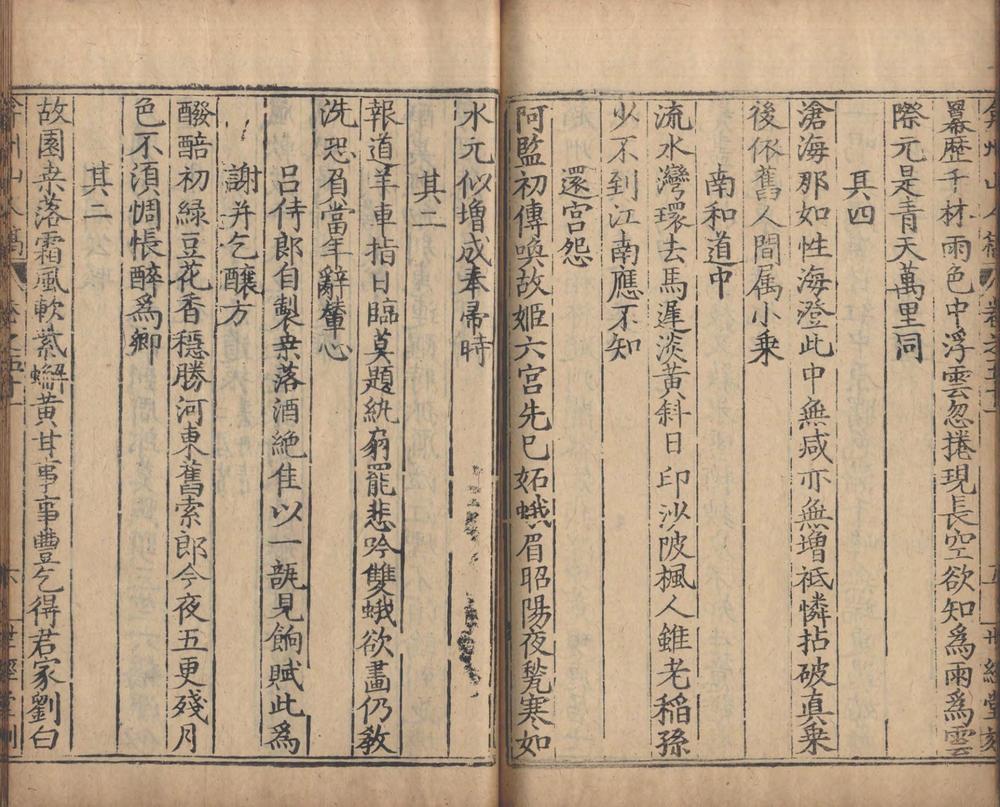 弇州山人稿 卷之五十 五 世經堂刻
羃歷千材雨色中浮雲忽捲現長空欲知爲雨爲雲
際元是青天萬里同
其四
滄海那如性海澄此中無咸亦無增祗憐拈破真乗
後依舊人間属小乗
南和道中
流水灣環去馬遲淡黃斜日印沙陂楓人雖老稲孫
少不到江南應不知
還宫怨
阿監初傳喚故姬六宫先已妬蛾眉昭陽夜甃寒如
水元似增成奉帚時
其二
報道羊車指日臨莫題紈扇罷悲吟雙蛾欲畵仍教
洗恐眉當年辭輦心
吕侍郎自製桒落酒絶佳以一瓻見餉賦此爲
謝并乞釀方
醱醅初綠豆花香穩勝河東舊索郎今夜五更殘月
色不湏惆悵醉爲鄉
其二
故園桒落霜風軟紫蠏黃甘事事豊乞得君家劉白
弇州山人稿 卷之五十 六 世經堂刻